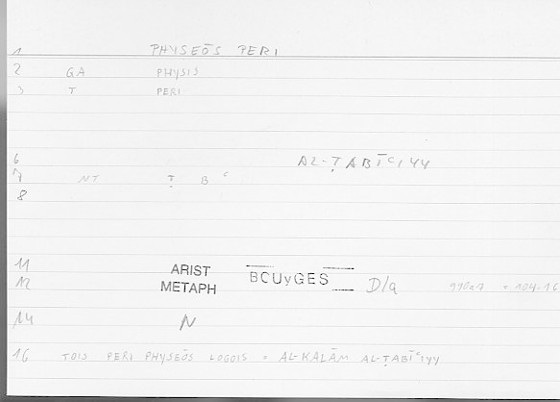 1 PHYSEŌS PERI
2 GA PHYSIS
3 T PERI
6 AL-ṬABĪʿIYY
7 NT Ṭ B ʿ
8
11 ARIST BCUyGES
12 METAPH D/a 990a7 = 104.16
14 N
16 TOIS PERI PHYSEŌS LOGOIS = AL-KALĀM AL-ṬABĪʿIYY